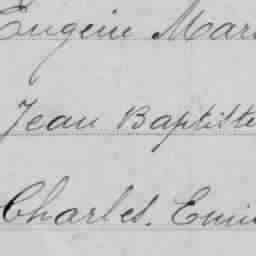 Eugène Mar
Jean Baptiste
Charles. Emi